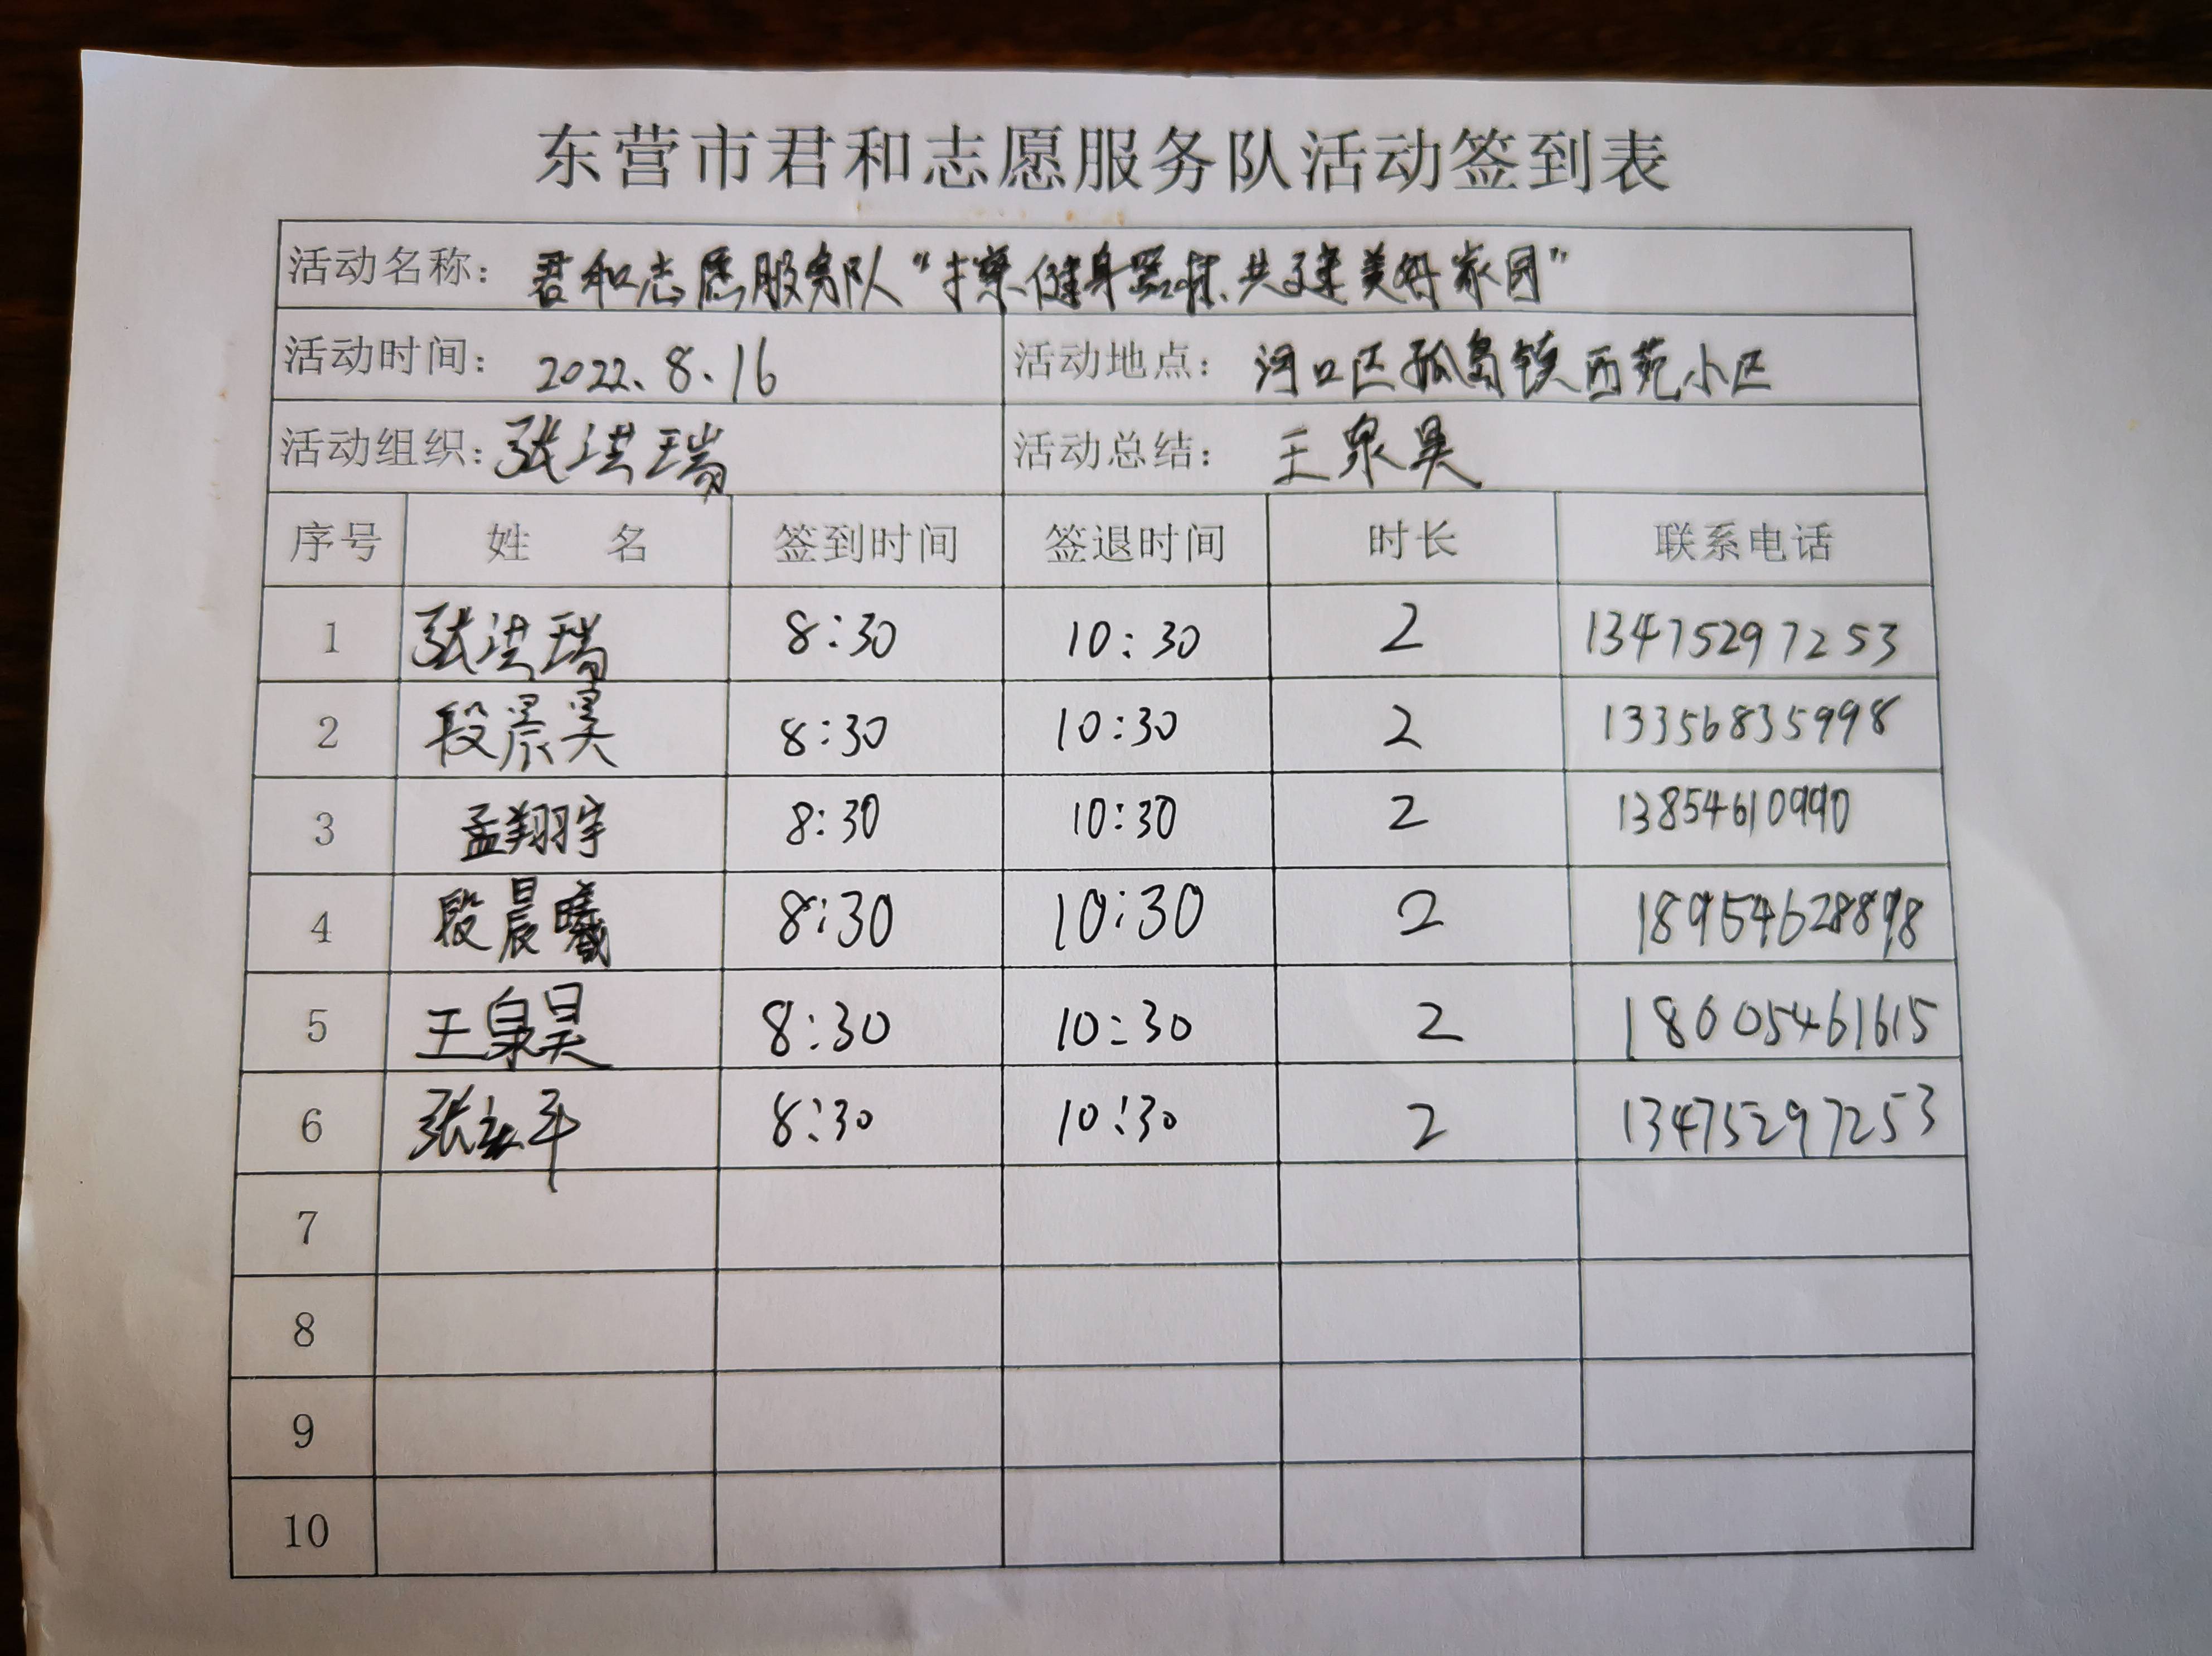 东营市君和志愿服务队活动签到表
活动名称: 君和志愿服务队“擦健身器材、共建美好家园”
活动时间: 2022.8.16 活动地点: 河口区孤岛镇西苑小区
活动组织: 张洪瑞 活动总结: 王泉昊
序号 姓 名 签到时间 签退时间 时长 联系电话
1 张洪瑞 8:30 10:30 2 13475297253
2 段景昊 8:30 10:30 2 13356835998
3 孟翔宇 8:30 10:30 2 13854610990
4 段晨曦 8:30 10:30 2 18954628898
5 王泉昊 8:30 10:30 2 18605461615
6 张 平 8:30 10:30 2 13475297253
7
8
9
10